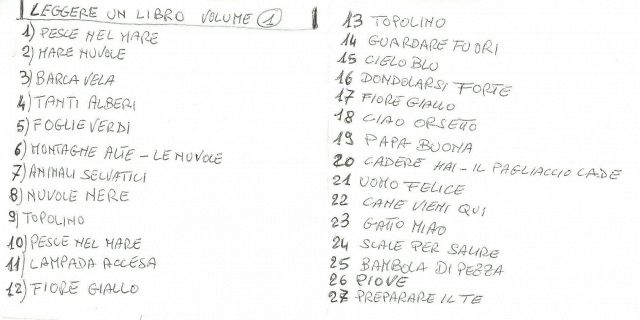 LEGGERE UN LIBRO VOLUME 1
1) PESCE NEL MARE
2) MARE NUVOLE
3) BARCA VELA
4) TANTI ALBERI
5) FOGLIE VERDI
6) MONTAGNE ALTE - LE NUVOLE
7) ANIMALI SELVATICI
8) NUVOLE NERE
9) TOPOLINO
10) PESCE NEL MARE
11) LAMPADA ACCESA
12) FIORE GIALLO
13 TOPOLINO
14 GUARDARE FUORI
15 CIELO BLU
16 DONDOLARSI FORTE
17 FIORE GIALLO
18 CIAO ORSETTO
19 PAPA BUONA
20 CADERE HAI - IL PAGLIACCIO CADE
21 UOMO FELICE
22 CANE VIENI QUI
23 GATTO MIAO
24 SCALE PER SALIRE
25 BAMBOLA DI PEZZA
26 PIOVE
27 PREPARARE IL TE